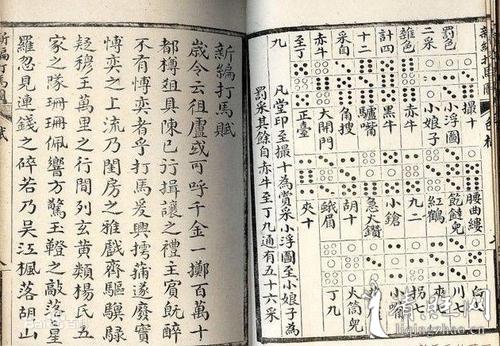 新編打馬圖
罰色
二采
雜色
撮十
小浮圖
小娘子
腰曲縷
赤牛
黑牛
驢嘴
角搜
大開門
正臺
紅鶴
九二
小鎗
急火鑽
胡十
蛾眉
夾十
夾七
拐七
川七
大肚
白七
丁九
凡堂印至撮十為賞采小浮圖至小娘子為
罰采其餘自赤牛至丁九通有五十六采
新編打馬賦
歲令云徂盧或可呼千金一擲百萬十
都樽俎具陳已行揖讓之禮主賓既醉
不有博奕者乎打馬爰興摴蒱遂廢實
博奕之上流乃閨房之雅戲齊驅驥騄
疑穆王萬里之行間列玄黃類楊氏五
家之隊珊珊佩響方驚玉鐙之敲落星
羅忽見連錢之碎若乃吳江楓落胡山
新編打馬圖
賦